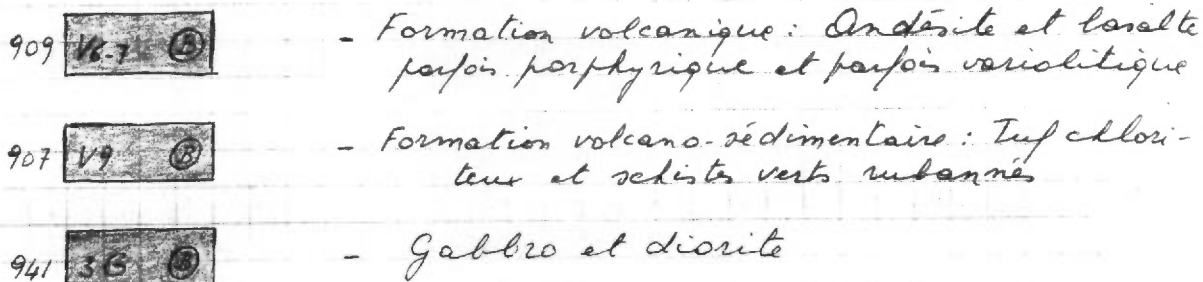 909 V6-7 B - Formation volcanique : Andésite et basalte
parfois porphyrique et parfois variolitique
907 V9 B - Formation volcano-sédimentaire : Tuf chlori-
teux et schistes verts rubannés
941 3G B - Gabbro et diorite